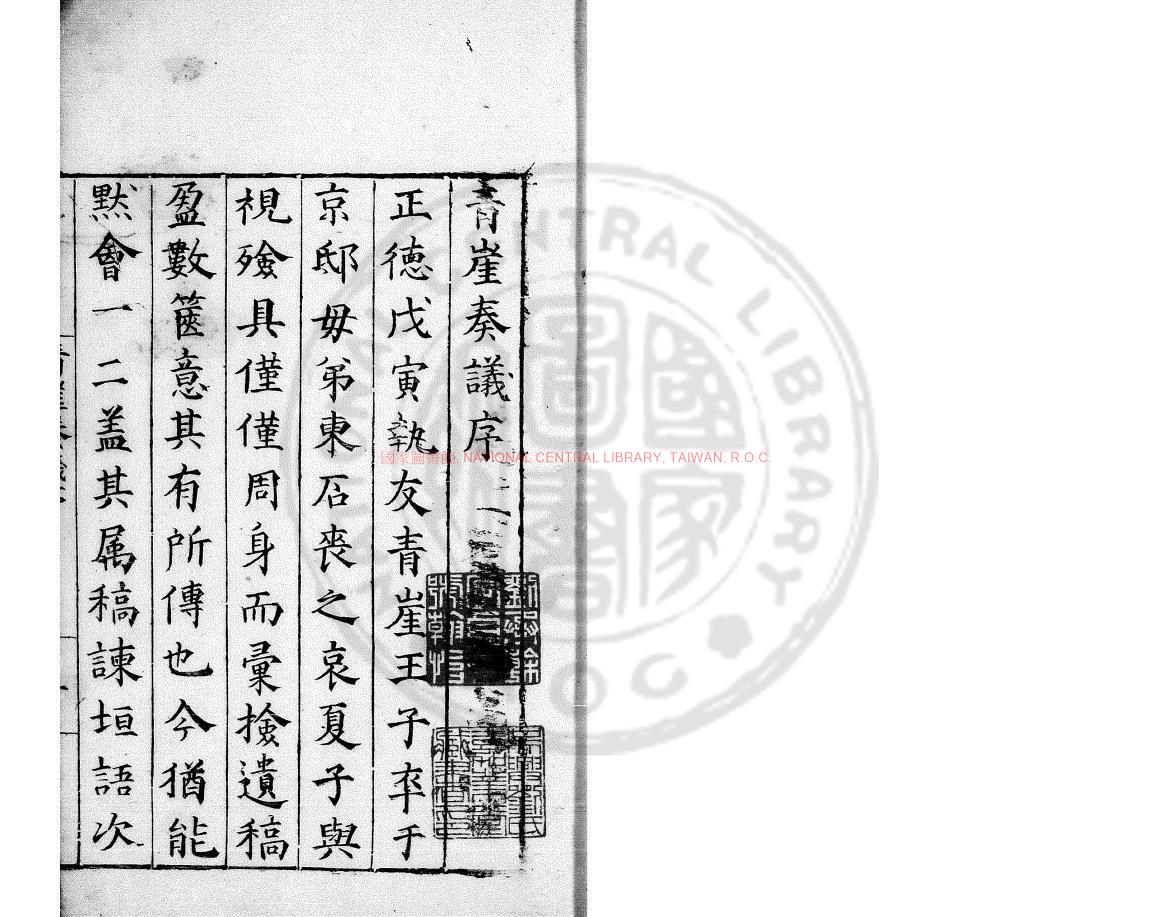 青崖奏議序
正德戊寅執友青崖王子卒于
京邸毋弟東石丧之哀夏子與
視殮具僅僅周身而彙撿遺稿
盈數篋意其有所傳也今猶能
黙會一二盖其属稿諫垣語次
國家圖書館, NATIONAL CENTRAL LIBRARY, TAIWAN, R.O.C.
NATIONAL CENTRAL LIBRARY
國家圖書